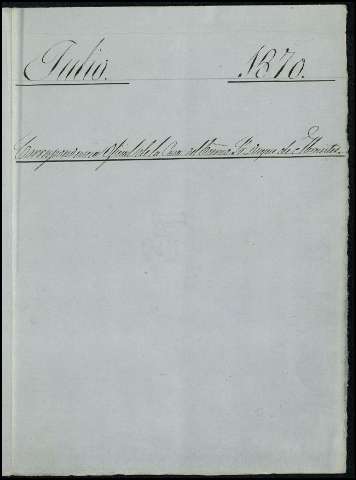 Julio. 1870.
Correspondencia Oficial de la Casa del Excmo. Sr. Duque de Abrantes.